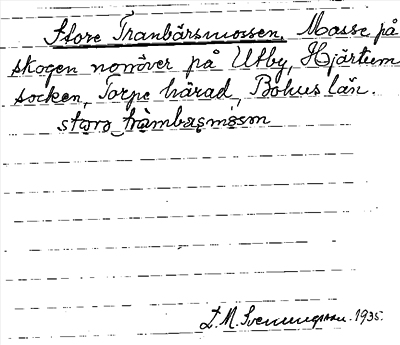 Store Tranbärsmossen. Mosse på
skogen norröver på Utby, Hjärtum
socken, Torpe härad, Bohus län.
storə tràmbasmåsən
L. M. Svenungsson. 1935.